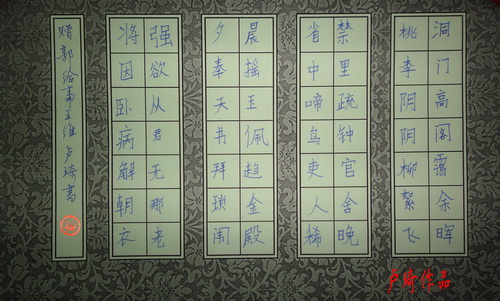 洞门高阁霭余晖
桃李阴阴柳絮飞
禁里疏钟官舍晚
省中啼鸟吏人稀
晨摇玉佩趋金殿
夕奉天书拜琐闱
强欲从君无那老
将因卧病解朝衣
赠郭给事王维卢琦
卢琦作品